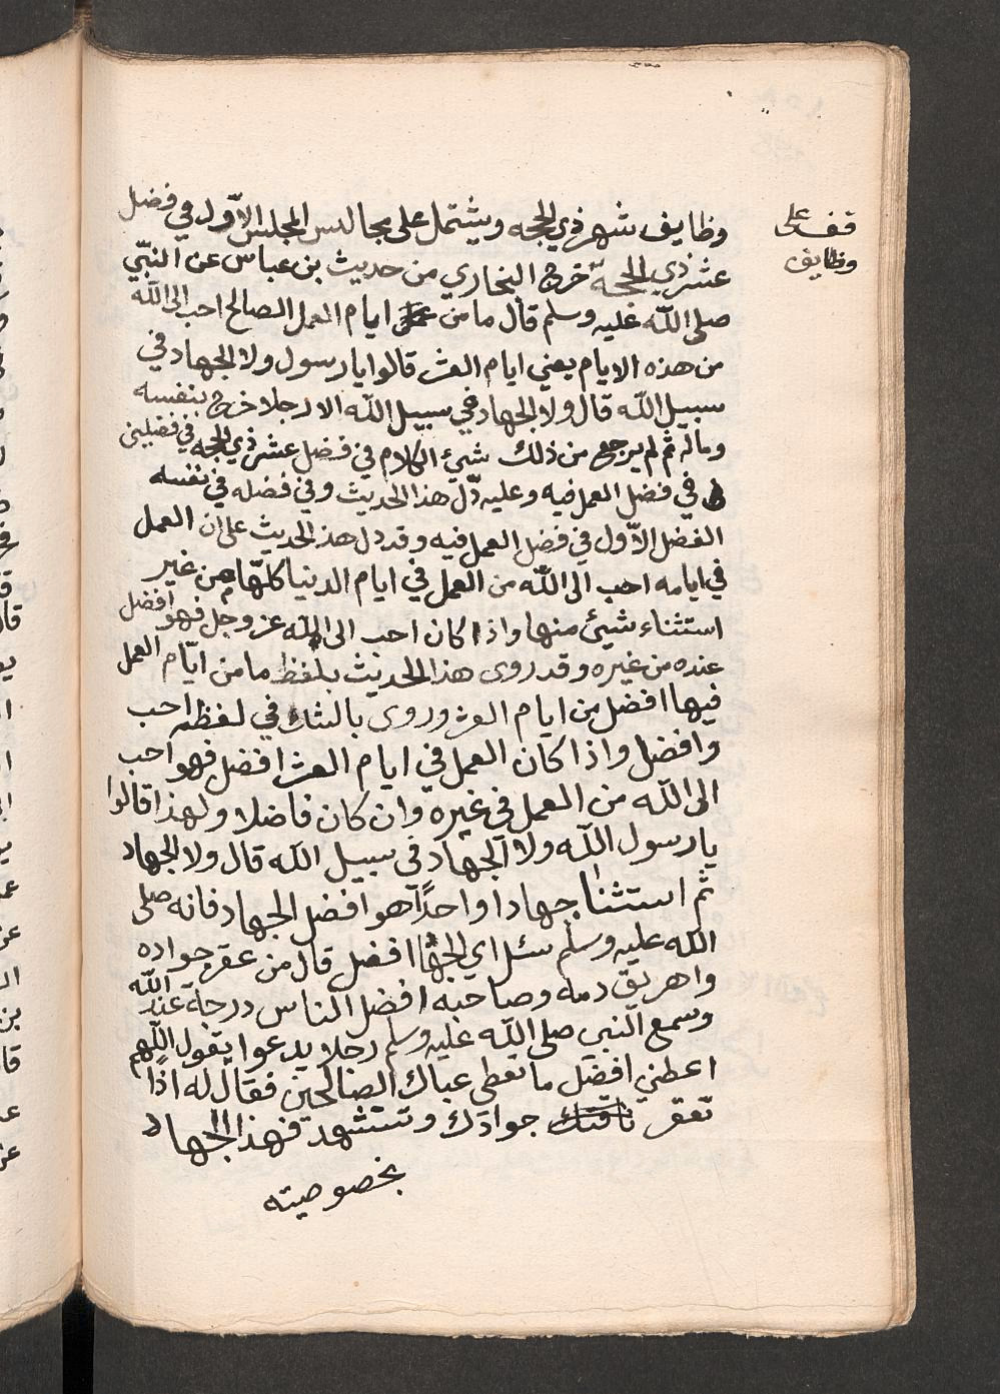 قف على
وظايف
وظايف شهر ذي الحجه ويشتمل على مجالس المجلس الاوّل في فضل
عشر ذي الحجة خرج البخاري من حديث بن عباس عن النبّي
صلى اللّه عليه وسلم قال ما من ايام العمل الصالح احب الى اللّه
من هذه الايام يعني ايام العشر قالوا يا رسول ولا الجهاد في
سبيل اللّه قال ولا الجهاد في سبيل اللّه الا رجلا خرج بنفسه
وماله ثم لم يرجع من ذلك شيئ الكلام في فضل عشر ذي الحجه في فضلين
في فضل العمل فيه وعليه دّل هذا الحديث وفي فضله في نفسه
الفضل الاّول في فضل العمل فيه وقد دل هذ الحديث على ان العمل
في ايامه احب الى اللّه من العمل في ايام الدنيا كلهّا من غير
استثناء شيئ منها واذا كان احب الى اللّه عز وجل فهو افضل
عنده من غيره وقد روى هذا الحديث بلفظ ما من ايّام العمل
فيها افضل من ايام العشر وروى بالشك في لفظه احب
وافضل واذا كان العمل في ايام العشر افضل فهو احب
الى اللّه من العمل في غيره وان كان فاضلا ولهذا قالوا
يا رسول اللّه ولا الجهاد في سبيل اللّه قال ولا الجهاد
ثم استثنا جهادا واحدًا هو افضل الجهاد فانه صلى
اللّه عليه وسلم سئل اي الجهاد افضل قال من عقر جواده
واهريق دمه وصاحبه افضل الناس درجة عند اللّه
وسمع النبي صلى اللّه عليه وسلم رجلا يدعوا يقول اللّهم
اعطني افضل ما تعطى عبادك الصالحين فقال له اذًا
تعقر ناقتك جوادك وتستشهد فهذا الجهاد
بخصوصيته